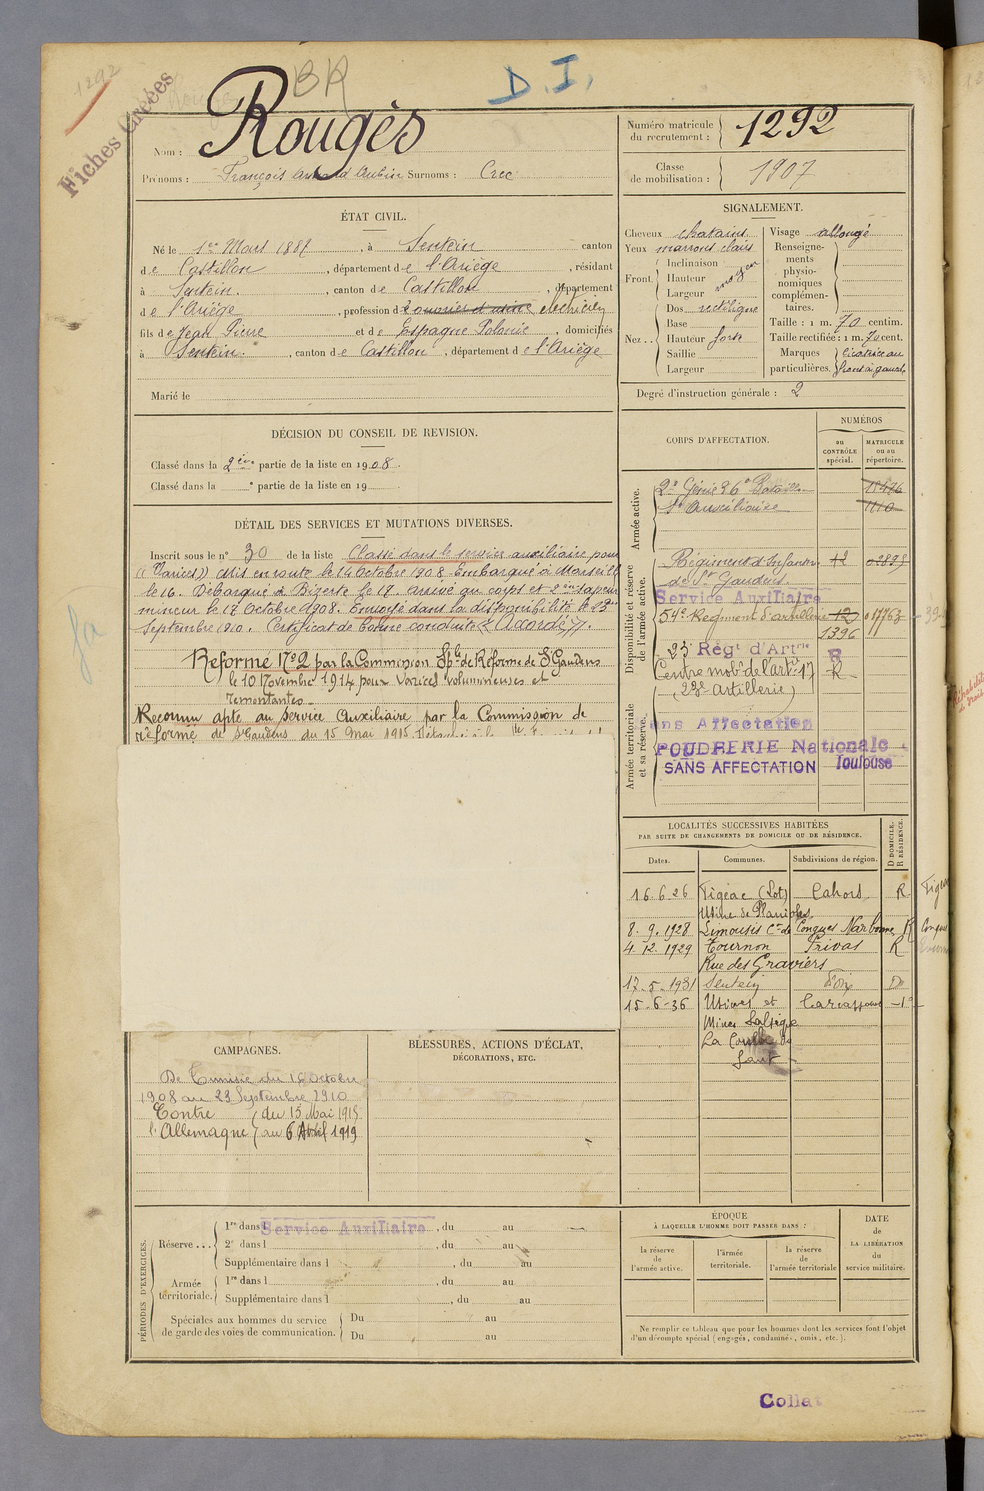 1292
Fiches Créées
BR
D. I.
Nom : Rougès
Prénoms : François Armand Aubin Surnoms : Crec
Numéro matricule du recrutement : 1292
Classe de mobilisation : 1907
ÉTAT CIVIL.
Né le 1er Mars 1887, à Sentein canton
de Castillon, département de l'Ariège, résidant
à Sentein, canton de Castillon, département
de l'Ariège, profession d'ouvrier d'usine électricien
fils de Jean Pierre et de Espagne Polonie, domiciliés
à Sentein, canton de Castillon, département de l'Ariège
Marié le
SIGNALEMENT.
Cheveux chatains
Yeux marrons clairs
Front. Inclinaison
Hauteur moyen
Largeur
Nez .. Dos rectiligne
Base
Hauteur forte
Saillie
Largeur
Visage allongé
Renseignements physionomiques complémentaires.
Taille : 1 m. 70 centim.
Taille rectifiée : 1 m. 70 cent.
Marques particulières. Cicatrice au front à gauche
Degré d'instruction générale : 2
DÉCISION DU CONSEIL DE REVISION.
Classé dans la 2e partie de la liste en 1908.
Classé dans la e partie de la liste en 19
DÉTAIL DES SERVICES ET MUTATIONS DIVERSES.
Inscrit sous le n° 30 de la liste Classé dans le service auxiliaire pour
"Varices" Mis en route le 14 Octobre 1908. Embarqué à Marseille
le 16. Débarqué à Bizerte le 17. arrivé au corps et 2ème sapeur
mineur le 17 Octobre 1908. Envoyé dans la disponibilité le 23
Septembre 1910. Certificat de bonne conduite "Accordé".
Réformé N°2 par la Commission Sple de Réforme de St Gaudens
le 10 Novembre 1914 pour Varices volumineuses et
remontantes.
Reconnu apte au Service Auxiliaire par la Commission de
réforme de St Gaudens du 15 Mai 1915.
CORPS D'AFFECTATION.
NUMÉROS
au CONTRÔLE spécial.
MATRICULE ou au répertoire.
Armée active.
2e Génie 26e Bataillon
Son Auxiliaire
1110
Disponibilité et réserve de l'armée active.
Régiment d'Infanterie
de St Gaudens
Service Auxiliaire
54e Régiment d'artillerie
1396
23e Régt d'Artie R
Centre mobre de l'artie 17 R
(23e Artillerie)
Armée territoriale et sa réserve.
ans Affectation
POUDRERIE Nationale
SANS AFFECTATION Toulouse
LOCALITÉS SUCCESSIVES HABITÉES
PAR SUITE DE CHANGEMENTS DE DOMICILE OU DE RÉSIDENCE.
Dates. Communes. Subdivisions de région. D DOMICILE. R RÉSIDENCE.
16.6.26 Figeac (Lot) Cahors R
Usine de Planioles
8.9.1928 Limousis Cn de Conques Narbonne R
4.12.1929 Tournon Privas R
Rue des Graviers
17.5.1931 Sentein Foix D
15-6-36 Usines et Carcassonne
Mines Salsigne
La Combe du
Saut
CAMPAGNES.
De Tunisie du 16 Octobre
1908 au 23 Septembre 1910
Contre du 15 Mai 1915
l'Allemagne au 6 Avril 1919
BLESSURES, ACTIONS D'ÉCLAT,
DÉCORATIONS, ETC.
PÉRIODES D'EXERCICES.
Réserve ... 1re dans l Service Auxiliaire, du au
2e dans l , du au
Supplémentaire dans l , du au
Armée territoriale. 1re dans l , du au
Supplémentaire dans l , du au
Spéciales aux hommes du service de garde des voies de communication. Du au
Du au
ÉPOQUE
À LAQUELLE L'HOMME DOIT PASSER DANS :
la réserve de l'armée active.
l'armée territoriale.
la réserve de l'armée territoriale
DATE de LA LIBÉRATION du service militaire.
Ne remplir ce tableau que pour les hommes dont les services font l'objet
d'un décompte spécial (engagés, condamnés, omis, etc.).
Collat